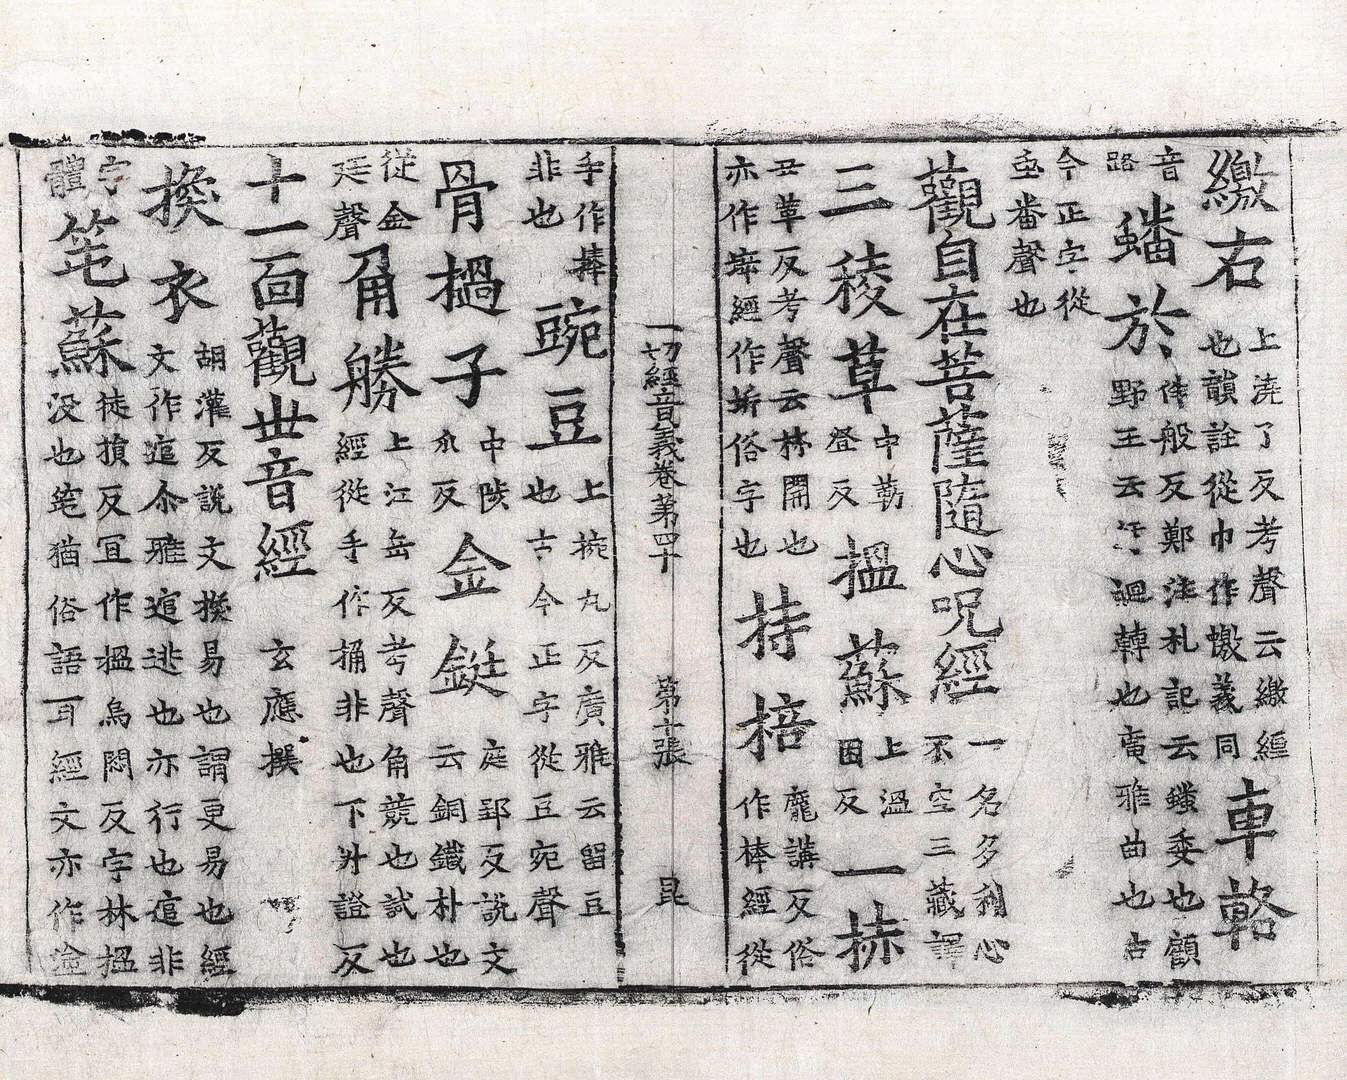 繳右 上澆了反考聲云繳纏
也韻詮從巾作憿義同 車輅
音
路 蟠於 伴般反鄭注札記云蟠委也顧
野王云紆迴轉也廣雅曲也古
今正字從
虫番聲也
觀自在菩薩隨心呪經 一名多利心
不空三藏譯
三稜草 中勒
登反 搵蘇 上溫
困反 一𢪛
丑革反考聲云𢪛開也
亦作㡿經作㧻俗字也 持棓 龐講反俗
作棒經從
一切經音義卷第四十 第十張 昆
手作捧
非也 豌豆 上捥丸反廣雅云留豆
也古今正字從豆宛聲
骨撾子 中陟
爪反 金鋌 庭郢反說文
云銅鐵朴也
從金
廷聲 角勝 上江岳反考聲角競也試也
經從手作捔非也下升證反
十一面觀世音經 玄應撰
換衣 胡灌反說文換易也謂更易也經
文作逭尒雅逭逃也亦行也逭非
字
體 𥬞蘇 徒損反宜作搵烏悶反字林搵
没也𥬞猶俗語耳經文亦作塗